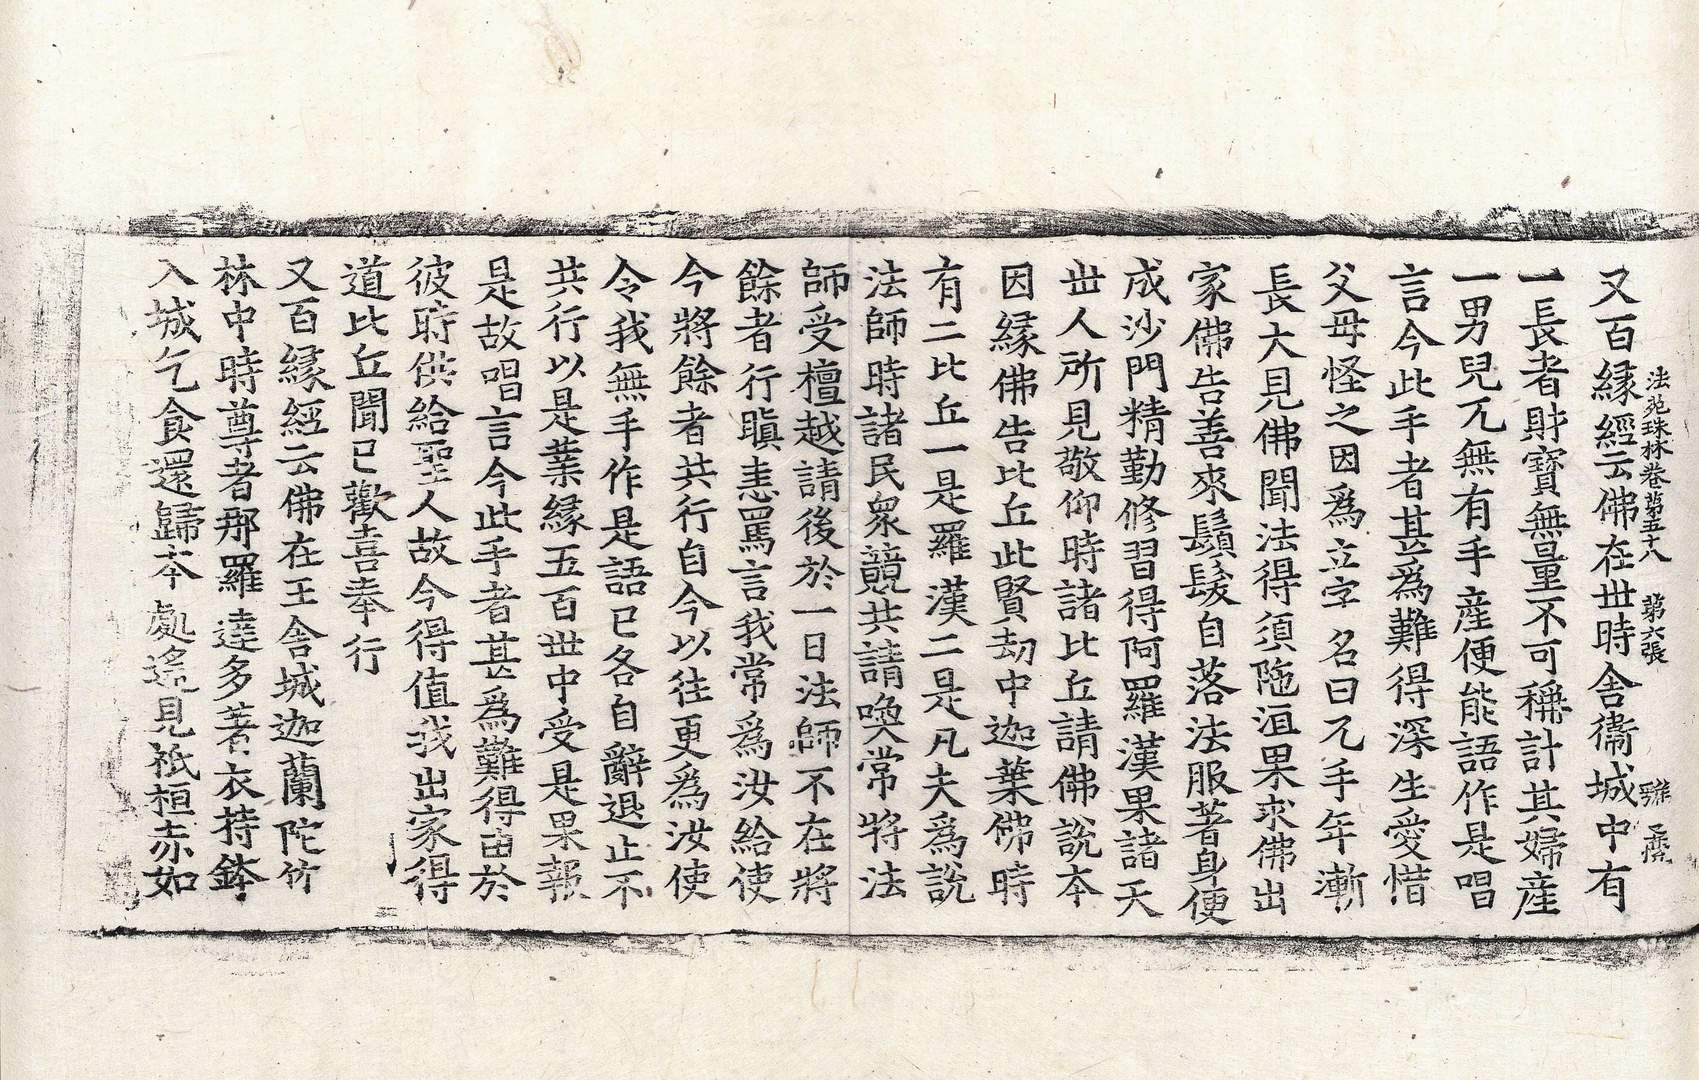 法苑珠林卷第五十八 第六張
又百縁經云佛在世時舍衛城中有
一長者財寶無量不可稱計其婦産
一男兒兀無有手産便能語作是唱
言今此手者甚爲難得深生愛惜
父母怪之因爲立字名曰兀手年漸
長大見佛聞法得須陁洹果求佛出
家佛告善來鬚髮自落法服著身便
成沙門精勤修習得阿羅漢果諸天
世人所見敬仰時諸比丘請佛說本
因緣佛告比丘此賢劫中迦葉佛時
有二比丘一是羅漢二是凡夫爲說
法師時諸民衆競共請喚常將法
師受檀越請後於一日法師不在將
餘者行瞋恚罵言我常爲汝給使
今將餘者共行自今以往更爲汝使
令我無手作是語已各自辭退止不
共行以是業緣五百世中受是果報
是故唱言今此手者甚爲難得由於
彼時供給聖人故今得值我出家得
道比丘聞已歡喜奉行
又百縁經云佛在王舍城迦蘭陀竹
林中時尊者那羅達多著衣持鉢
入城乞食還歸本處遙見祇桓赤如